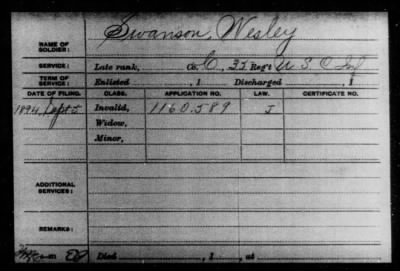 Swanson, Wesley
NAME OF SOLDIER:
SERVICE: Late rank, Co. C, 35 Reg't U S C Inf
TERM OF SERVICE: Enlisted , 1 Discharged , 1
DATE OF FILING. CLASS. APPLICATION NO. LAW. CERTIFICATE NO.
1894, Sept 5 Invalid, 1160.589 J
Widow,
Minor,
ADDITIONAL SERVICES:
REMARKS:
Died , 1 , at